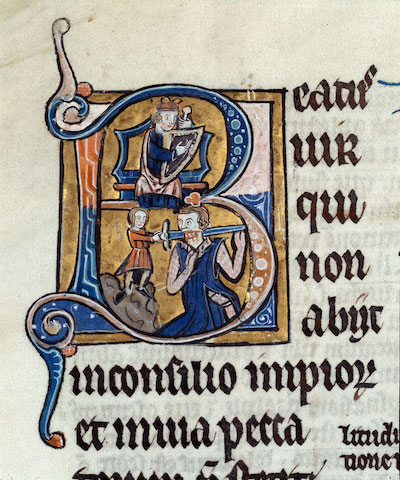 Beatus
uir
qui
non
abijt
in consilio impior
et in uia pecca